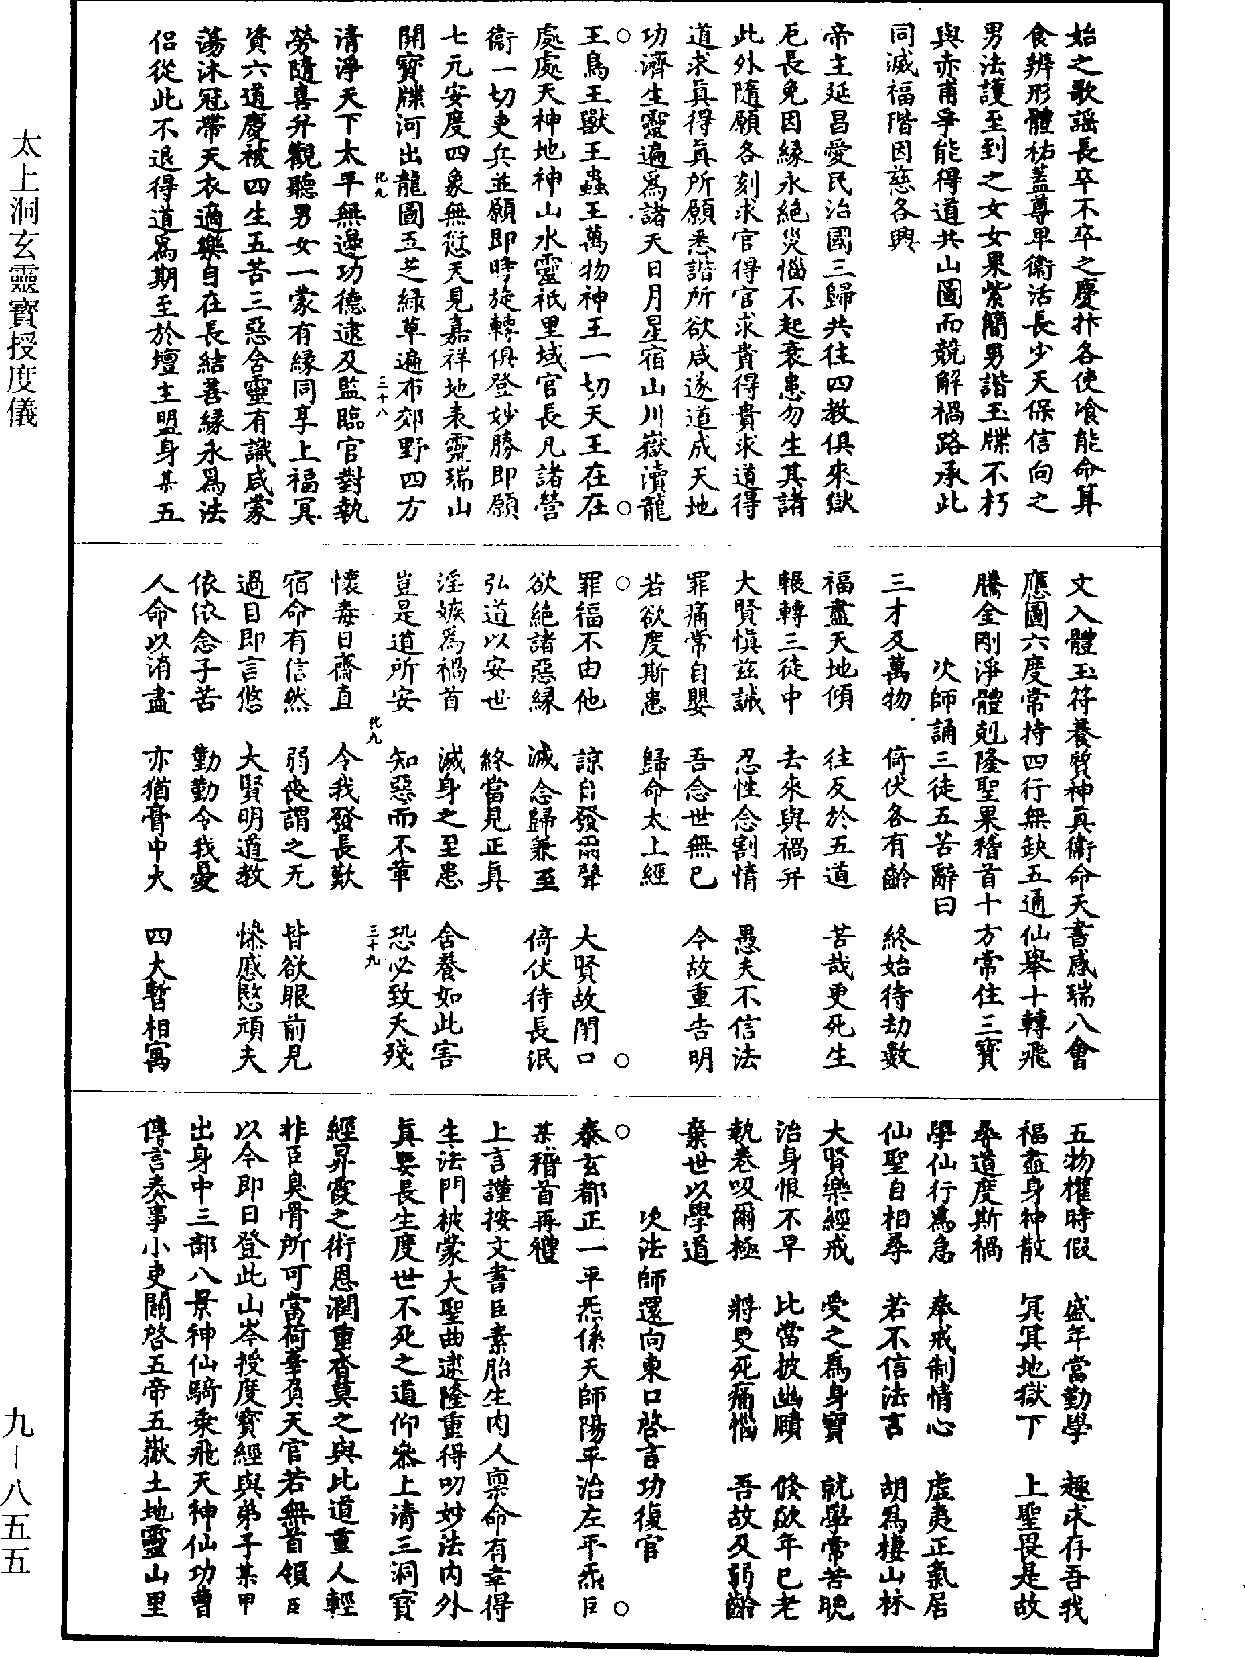 始之歌謠長卒不卒之慶抃各使飡能命算
食辨形體祐蓋尊卑衛活長少天保信向之
男法護至到之女女果紫簡男諧玉牒不朽
與赤甫爭能得道共山圖而競解禍路承此
同滅福階因慈各興
帝主延昌愛民治國三歸共往四教俱來獄
厄長免因緣永絕災惱不起衰患勿生其諸
此外隨願各刻求官得官求貴得貴求道得
道求真得真所願悉諧所欲咸遂道成天地
功濟生靈遍為諸天日月星宿山川嶽瀆龍
王鳥王獸王蟲王萬物神王一切天王在在
處處天神地神山水靈祇里域官長凡諸營
衛一切吏兵並願即時旋轉俱登妙勝即願
七元安度四象無愆天見嘉祥地表靈瑞山
開寶牒河出龍圖五芝綠草遍布郊野四方
化九 三十八
清淨天下太平無邊功德逮及監臨官對執
勞隨喜弁觀聽男女一蒙有緣同享上福冥
資六道慶被四生五苦三惡含靈有識咸蒙
蕩沐冠帶天衣適樂自在長結善緣永為法
侶從此不退得道為期至於壇主盟身某五
文入體玉符養質神真衛命天書感瑞八會
應圖六度常持四行無缺五通仙舉十轉飛
騰金剛淨體剋隆聖果稽首十方常住三寶
次師誦三徒五苦辭曰
三才及萬物 倚伏各有齡 終始待劫數
福盡天地傾 往反於五道 苦哉更死生
輾轉三徒中 去來與禍并
大賢慎茲誡 忍性念割情 愚夫不信法
罪痛常自嬰 吾念世無已 今故重告明
若欲度斯患 歸命太上經
罪福不由他 諒自發爾聲 大賢故閉口
欲絕諸惡緣 滅念歸兼至 倚伏待長泯
弘道以安世 終當見正真
淫嫉為禍首 滅身之至患 舍養如此害
豈是道所安 知惡而不革 恐必致夭殘
化九 三十九
懷毒日齋直 今我發長歎
宿命有信然 弱喪謂之无 皆欲眼前見
過目即言悠 大賢明道教 慘慼愍頑夫
依依念子苦 勤勤令我憂
人命以消盡 亦猶膏中火 四大暫相寓
五物權時假 盛年當勤學 趣求存吾我
福盡身神散 冥冥地獄下 上聖畏是故
尋道度斯禍
學仙行為急 奉戒制情心 虛夷正氣居
仙聖自相尋 若不信法言 胡為棲山林
大賢樂經戒 受之為身寶 就學常苦晚
治身恨不早 比當披幽賾 倏欻年已老
執卷吸爾極 將更死痛惱 吾故及弱齡
棄世以學道
次法師還向東口啓言功復官
泰玄都正一平炁係天師陽平治左平炁臣
某稽首再禮
上言謹按文書臣素胎生肉人稟命有幸得
生法門被蒙大聖曲逮隆重得叨妙法內外
真要長生度世不死之道仰叅上清三洞寶
經昇霞之術恩潤重沓莫之與比道重人輕
非臣臭骨所可當荷辜負天官若無首領臣
以今即日登此山岑授度寶經與弟子某甲
出身中三部八景神仙騎乘飛天神仙功曹
傳言奏事小吏關啓五帝五嶽土地靈山里
太上洞玄靈寶授度儀
九—八五五